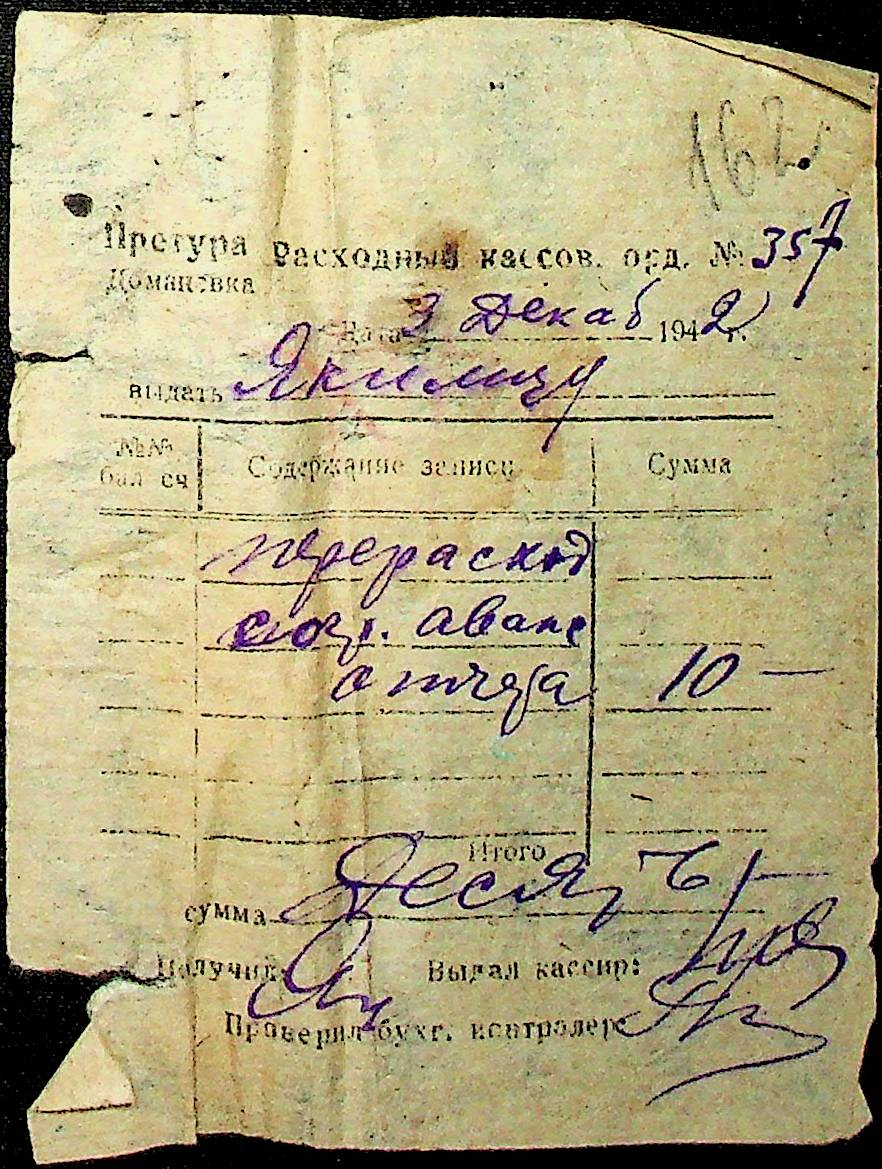 162
Претура Расходный кассов. орд. № 357
Домановка
Дата 3 Декаб 1942 г.
выдать Якимишу
№№ бал сч Содержание записи Сумма
перерасход
согл. аванс
отчета 10 —
Итого
сумма Десять
Получил Выдал кассир:
Проверил бухг. контролер